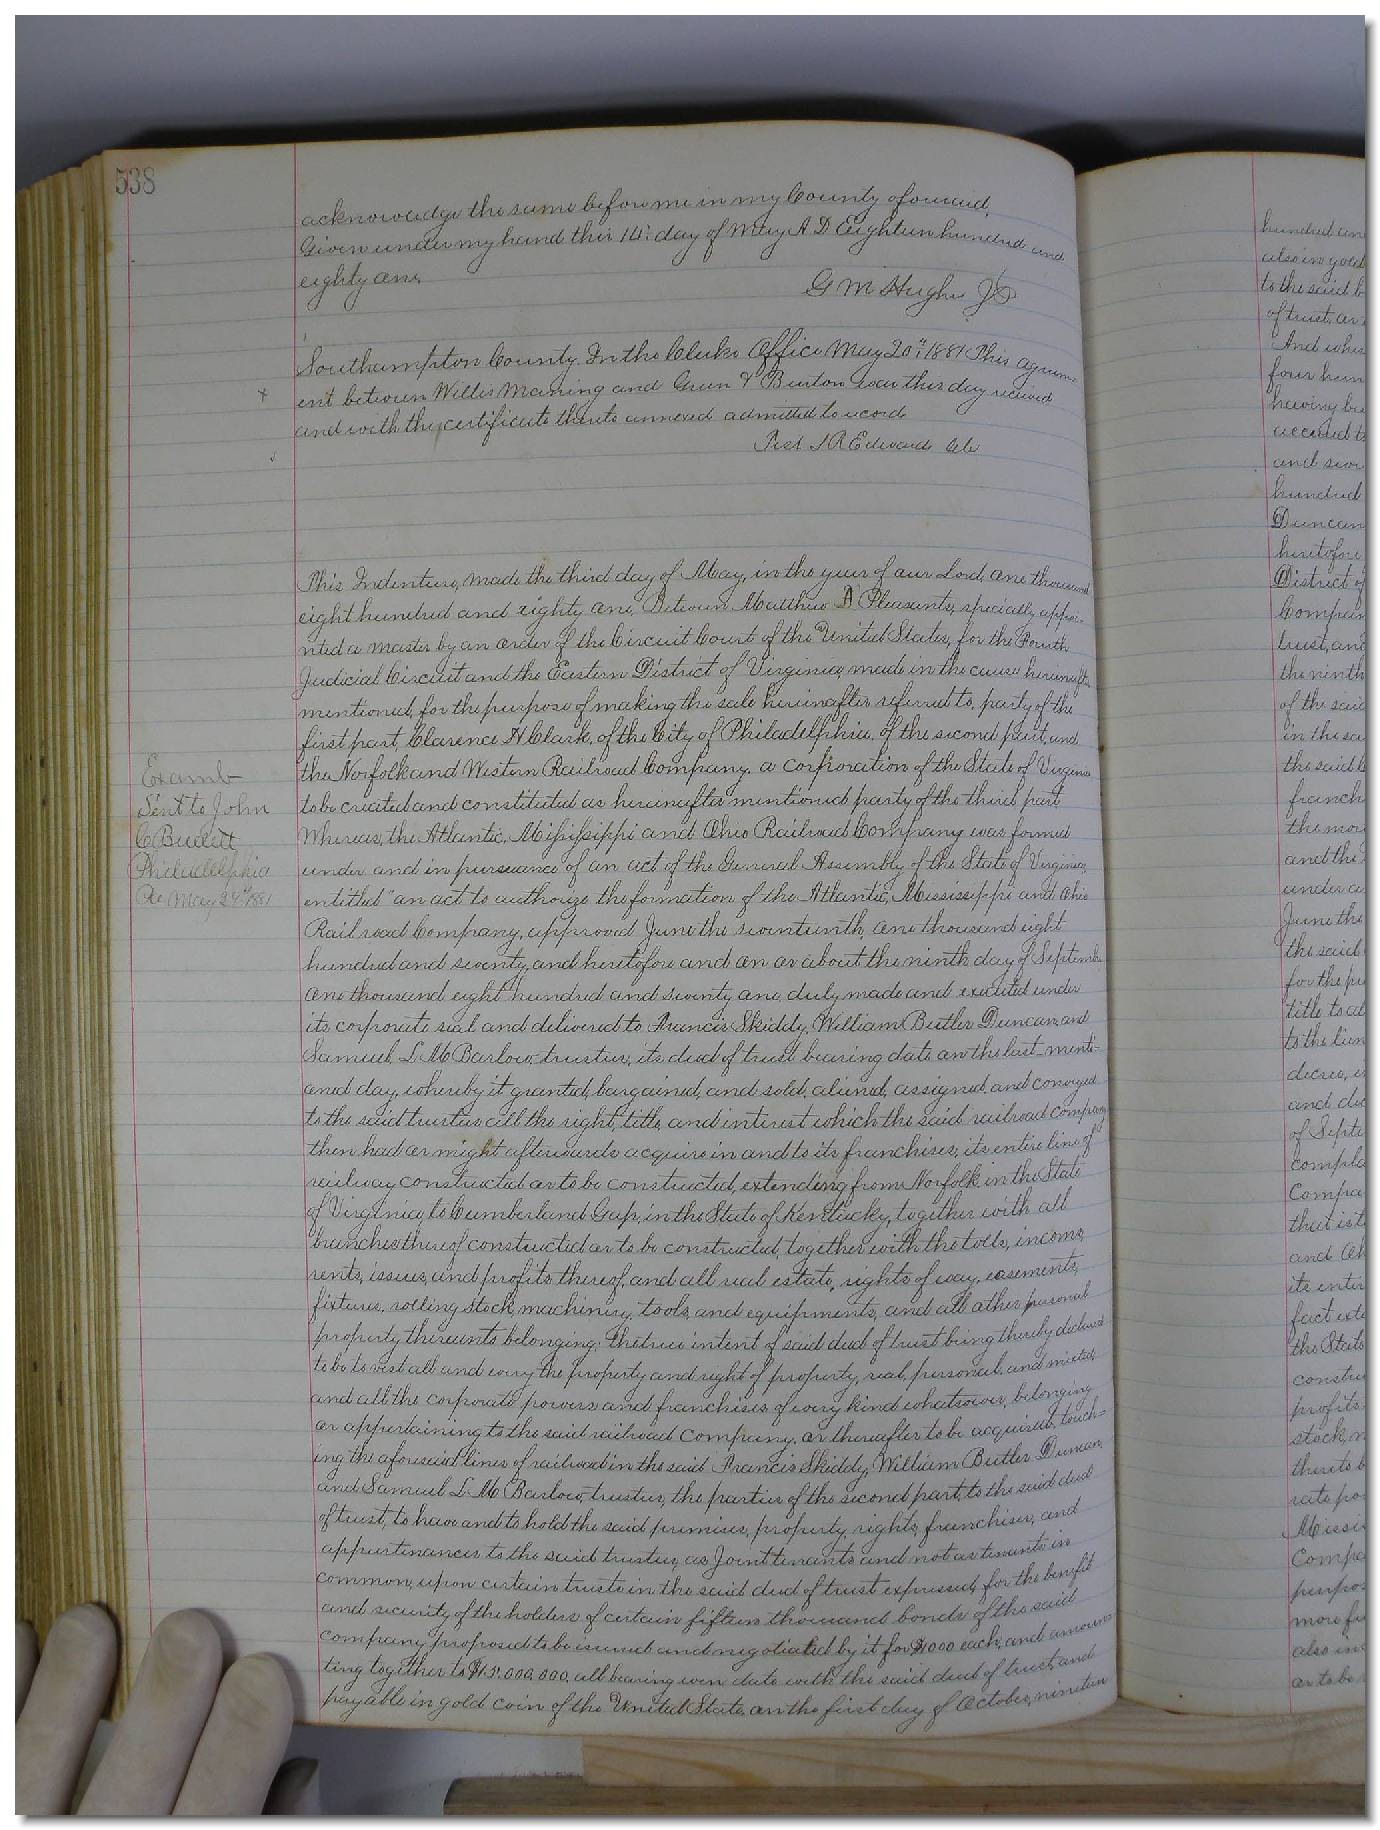 538
acknowledge the same before me in my County aforesaid.
Given under my hand this 14th day of May A D Eighteen hundred and
eighty one.
G M Hughs JP
Southampton County. In the Clerks Office May 20th 1881 This agreem
ent between Willis Manning and Green & Burton was this day received
and with the certificate thereto annexed admitted to record
Test J R Edwards Clk
This Indenture, made the third day of May, in the year of our Lord, one thousand
eight hundred and eighty one, Between Matthew Pleasants, specially appoi-
nted a master by an order of the Circuit Court of the United States, for the Fourth
Judicial Circuit and the Eastern District of Virginia, made in the cause hereinafter
mentioned, for the purpose of making the sale hereinafter referred to, party of the
first part, Clarence H Clark, of the City of Philadelphia, of the second part, and
the Norfolk and Western Railroad Company, a corporation of the State of Virginia
to be created and constituted as hereinafter mentioned party of the third part
Whereas, the Atlantic, Mississippi and Ohio Railroad Company was formed
under and in pursuance of an act of the General Assembly of the State of Virginia,
entitled "an act to authorize the formation of the Atlantic, Mississippi and Ohio
Railroad Company, approved June the seventeenth, one thousand eight
hundred and seventy, and heretofore and on or about the ninth day of September
one thousand eight hundred and seventy one, duly made and executed under
its corporate seal and delivered to Francis Skiddy, William Butler Duncan, and
Samuel L M Barlow, trustees, its deed of trust bearing date on the last menti-
oned day, whereby it granted, bargained, and sold, aliened, assigned, and conveyed
to the said trustees all the right, title, and interest which the said railroad company
then had or might afterwards acquire in and to its franchises, its entire line of
railway constructed or to be constructed, extending from Norfolk in the State
of Virginia, to Cumberland Gap, in the State of Kentucky, together with all
branches thereof constructed or to be constructed, together with the tolls, income,
rents, issues, and profits thereof, and all real estate, rights of way, easements,
fixtures, rolling stock, machinery, tools, and equipments, and all other personal
property thereunto belonging; the true intent of said deed of trust being thereby declared
to be to vest all and every the property and right of property, real, personal, and mixed,
and all the corporate powers and franchises of every kind whatsoever, belonging
or appertaining to the said railroad company, or thereafter to be acquired, touch=
ing the aforesaid lines of railroad in the said Francis Skiddy, William Butler Duncan,
and Samuel L M Barlow, trustees, the parties of the second part, to the said deed
of trust, to have and to hold the said premises, property, rights, franchises, and
appurtenances to the said trustees, as Joint tenants and not as tenants in
common, upon certain trusts in the said deed of trust expressed, for the benefit
and security of the holders of certain fifteen thousand bonds of the said
company proposed to be issued and negotiated by it for $1000 each, and amoun
ting together to $15.000.000, all bearing even date with the said deed of trust, and
payable in gold coin of the United States, on the first day of October, nineteen
Examd
Sent to John
C Bullitt
Philadelphia
Pa May 24th 1881
hundred an
also in gold
to the said b
of trust, or
And whe
four hun
having be
accrued t
and seve
hundred
Duncan
heretofore
District of
Compan
trust, and
the ninth
of the said
in the sa
the said
franch
the mor
and the
under a
June the
the said
for the pu
title to a
to the lim
decree,
and de
of Septe
compla
Compa
that is t
and Oh
its entir
fact exte
the State
constru
profits
stock, m
thereto b
rate po
Missi
Compa
purpos
more fu
also in
or to be